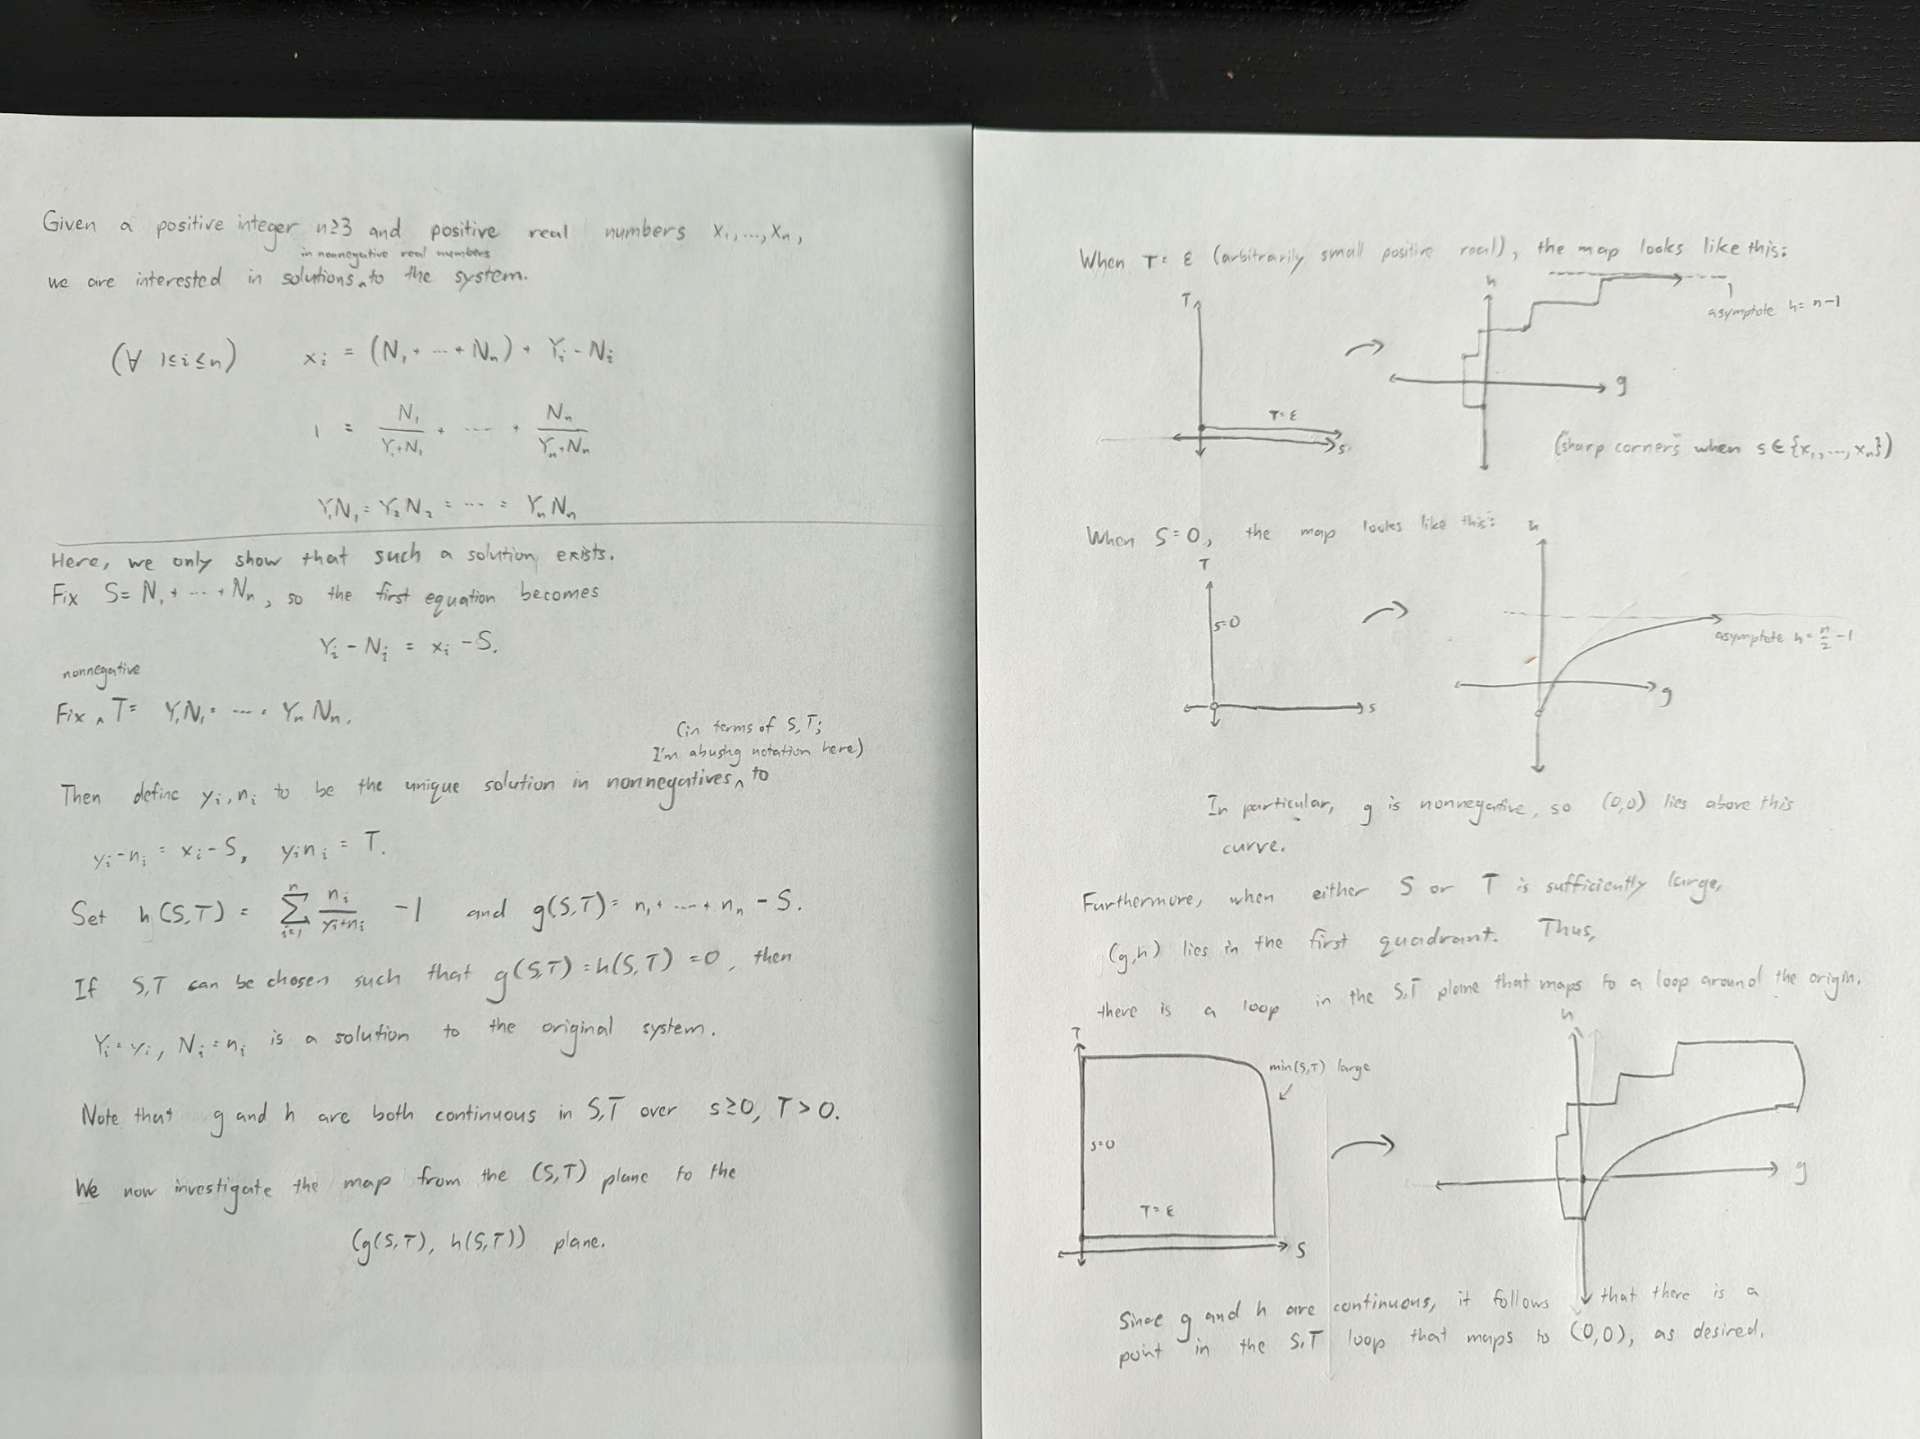 Given a positive integer n≥3 and positive real numbers x₁, ..., xₙ,
in nonnegative real numbers
we are interested in solutions ^ to the system.
(∀ 1≤i≤n) xᵢ = (N₁ + ... + Nₙ) + Yᵢ - Nᵢ
1 = N₁/(Y₁+N₁) + .... + Nₙ/(Yₙ+Nₙ)
Y₁N₁ = Y₂N₂ = ... = YₙNₙ
Here, we only show that such a solution exists.
Fix S = N₁ + ... + Nₙ, so the first equation becomes
Yᵢ - Nᵢ = xᵢ - S.
nonnegative
Fix ^ T = Y₁N₁ = ... = YₙNₙ.
(in terms of S, T;
I'm abusing notation here)
Then define yᵢ, nᵢ to be the unique solution in nonnegatives ^ to
yᵢ - nᵢ = xᵢ - S, yᵢnᵢ = T.
Set h(S,T) = ∑ᵢ₌₁ⁿ nᵢ/(yᵢ+nᵢ) - 1 and g(S,T) = n₁ + ... + nₙ - S.
If S,T can be chosen such that g(S,T) = h(S,T) = 0, then
Yᵢ = yᵢ, Nᵢ = nᵢ is a solution to the original system.
Note that g and h are both continuous in S,T over S≥0, T>0.
We now investigate the map from the (S,T) plane to the
(g(S,T), h(S,T)) plane.
When T = ε (arbitrarily small positive real), the map looks like this:
T
h
asymptote h = n-1
g
T=ε
S
(sharp "corners" when s∈{x₁,...,xₙ})
When S=0, the map looks like this:
h
T
S=0
asymptote h = n/2 - 1
g
S
In particular, g is nonnegative, so (0,0) lies above this
curve.
Furthermore, when either S or T is sufficiently large,
(g,h) lies in the first quadrant. Thus,
there is a loop in the S,T plane that maps to a loop around the origin.
T
h
min(S,T) large
S=0
g
T=ε
S
Since g and h are continuous, it follows that there is a
point in the S,T loop that maps to (0,0), as desired.